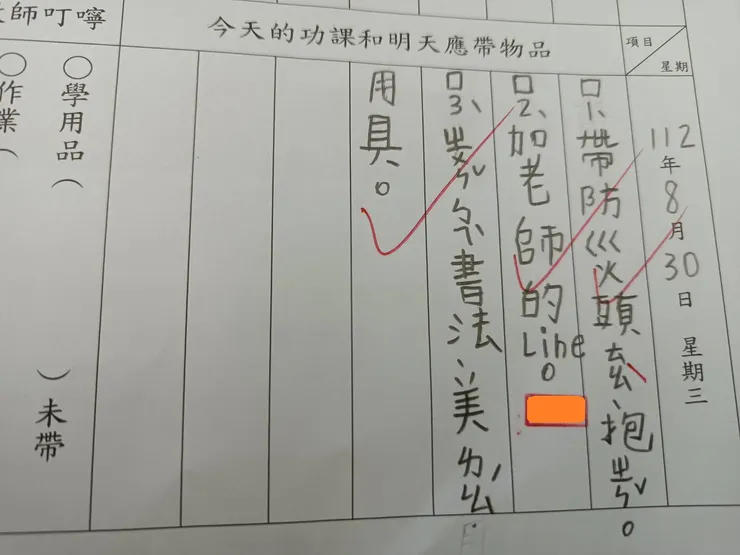 項目
星期
今天的功課和明天應帶物品
師叮嚀
112年8月30日 星期三
□1、帶防災頭ㄊㄠˋ、抱ㄓㄣˇ。
□2、加老師的Line。
□3、ㄓㄣˇ書法、美ㄌㄠˊ
用具。
○學用品（ ）未帶
○作業（